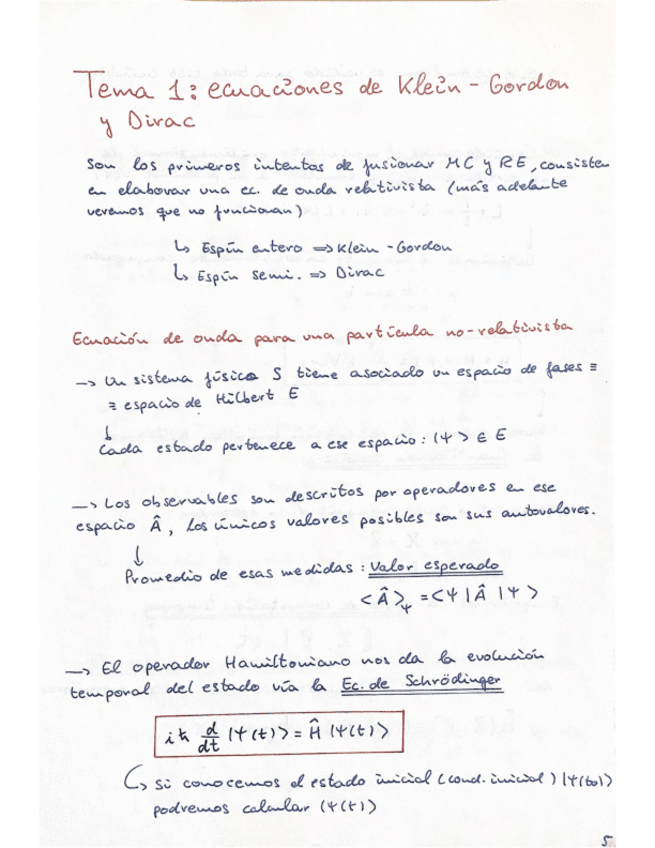 Tema 1: ecuaciones de Klein-Gordon
y Dirac
Son los primeros intentos de fusionar MC y RE, consisten
en elaborar una ec. de onda relativista (más adelante
veremos que no funcionan)
↳ Espín entero => Klein-Gordon
↳ Espín semi. => Dirac
Ecuación de onda para una partícula no-relativista
-> Un sistema físico S tiene asociado un espacio de fases ≡
≡ espacio de Hilbert E
↓
Cada estado pertenece a ese espacio: |Ψ> ∈ E
-> Los observables son descritos por operadores en ese
espacio Â, los únicos valores posibles son sus autovalores.
↓
Promedio de esas medidas: Valor esperado
<Â>_Ψ = <Ψ|Â|Ψ>
-> El operador Hamiltoniano nos da la evolución
temporal del estado vía la Ec. de Schrödinger
iħ d/dt |Ψ(t)> = Ĥ |Ψ(t)>
↳ si conocemos el estado inicial (cond. inicial) |Ψ(t0)>
podremos calcular |Ψ(t)>
5